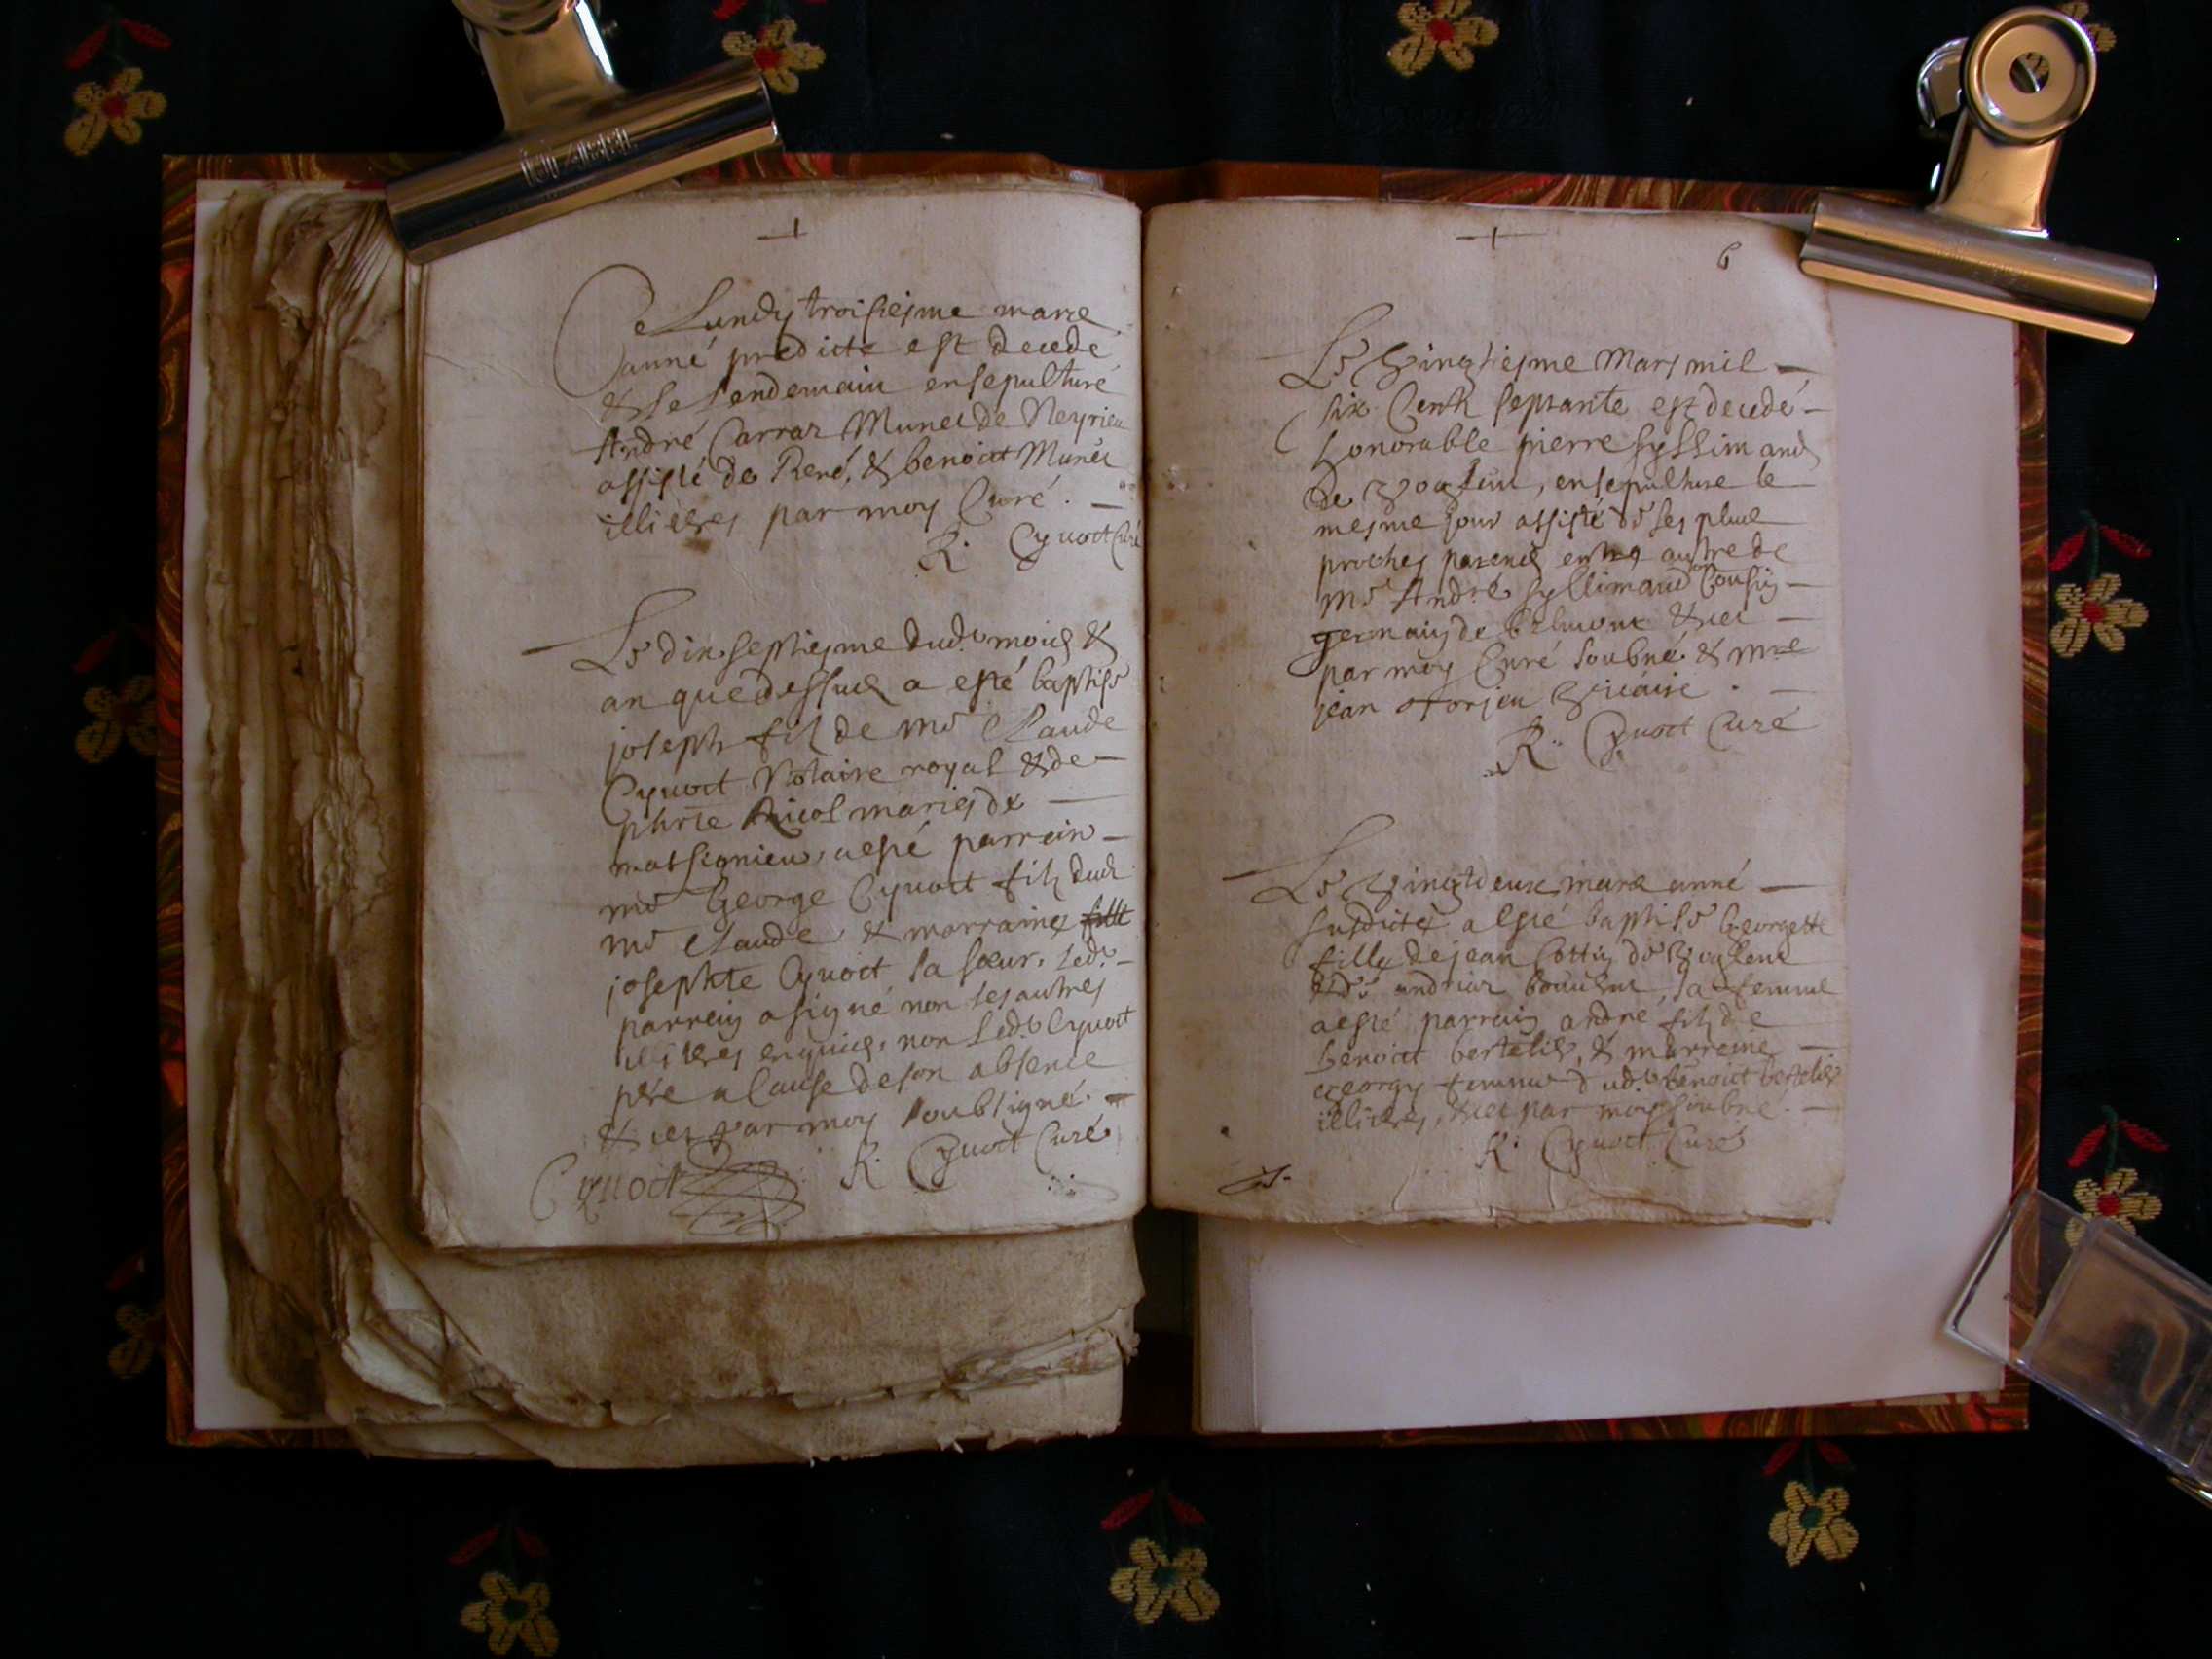 Ce Lundy troisiesme mars
anné predicte est decedé
& le lendemain ensepulturé
André Carraz Munet de Neyrieu
assisté de René, & benoict Munet
illitéres par moy Curé.
R. Cyvoct Curé
Le dix septiesme dud. mois &
an que dessus a esté baptisé
joseph filz de me Claude
Cyvoct Notaire royal & de
mariés de
massignieu, a esté parrein
me George Cyvoct filz dud.
me Claude, & marraine fille
josephte Cyvoct sa sœur, led.
parrein a signé non les autres
illitéres enquis, non led. Cyvoct
pére a Cause de son absence
& ce par moy soubsigné.
Cyvoct R. Cyvoct Curé
6
Le Vingtiesme Mars mil
six Cents septante est decedé
honorable pierre Syllimand
de Voglens, ensepulture le
mesme jour assisté de ses plus
proches parens entre autre de
me André Syllimand son Cousin
germain de & ce
par moy Curé soubné & mre
jean Vicaire.
R. Cyvoct Curé
Le Vingtdeux mars anné
susdicte a esté baptisé Georgette
fille de jean Cottin de Voglens
& de sa femme
a esté parrain andré filz de
benoict bertelier, & marreine
georgy femme dud. benoict bertelier
illitéres, & ce par moy soubné.
R. Cyvoct Curé